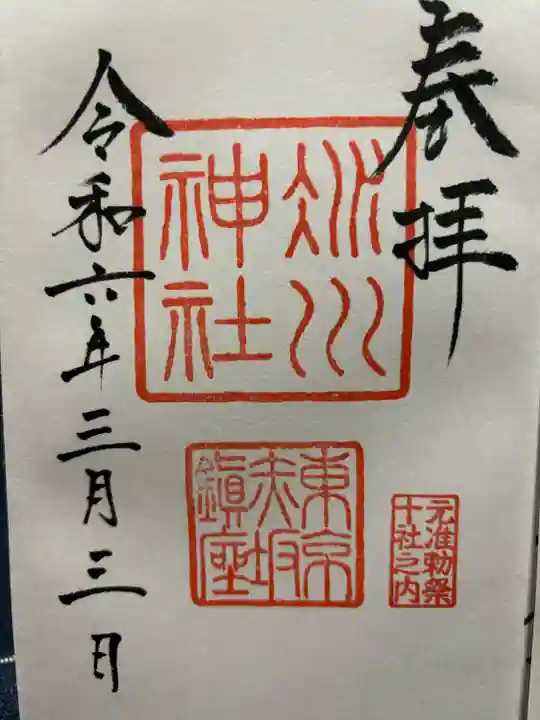 奉拝
氷川
神社
東京
赤坂
鎮座
元准勅祭
十社之内
令和六年三月三日